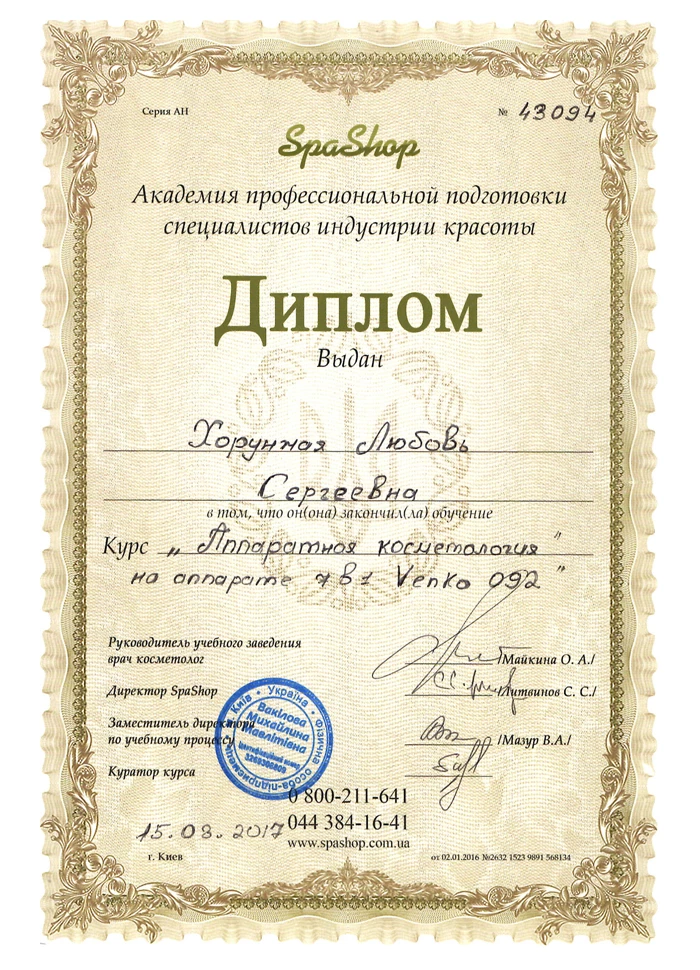 Серия АН
№ 43094
SpaShop
Академия профессиональной подготовки
специалистов индустрии красоты
Диплом
Выдан
Хорунжая Любовь
Сергеевна
в том, что он(она) закончил(ла) обучение
Курс „ Аппаратная косметология "
на аппарате 7 в 1 Venko 092 "
Руководитель учебного заведения
врач косметолог /Майкина О. А./
Директор SpaShop /Литвинов С. С./
Заместитель директора
по учебному процессу /Мазур В.А./
Куратор курса
м. Київ • Україна • Фізична особа-підприємець
Вакілова
Михайлина
Мавлітівна
Ідентифікаційний номер
0 800-211-641
15.03.2017 044 384-16-41
www.spashop.com.ua
г. Киев
от 02.01.2016 №2632 1523 9891 568134